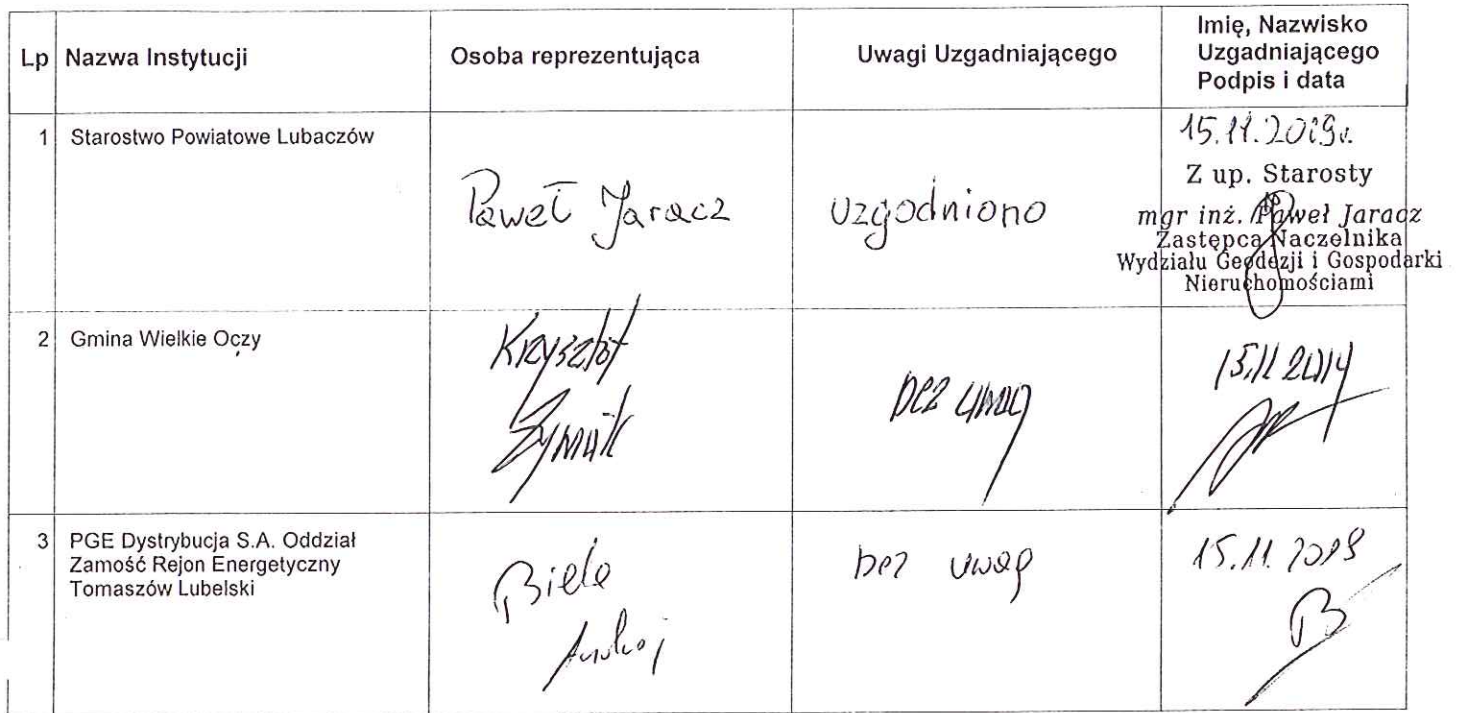 Lp Nazwa Instytucji Osoba reprezentująca Uwagi Uzgadniającego Imię, Nazwisko
Uzgadniającego
Podpis i data
1 Starostwo Powiatowe Lubaczów
Paweł Jaracz
uzgodniono
15.11.2019r.
Z up. Starosty
mgr inż. Paweł Jaracz
Zastępca Naczelnika
Wydziału Geodezji i Gospodarki
Nieruchomościami
2 Gmina Wielkie Oczy
Krzysztof
bez uwag
15.11
3 PGE Dystrybucja S.A. Oddział
Zamość Rejon Energetyczny
Tomaszów Lubelski
bez uwag
15.11.2019
B